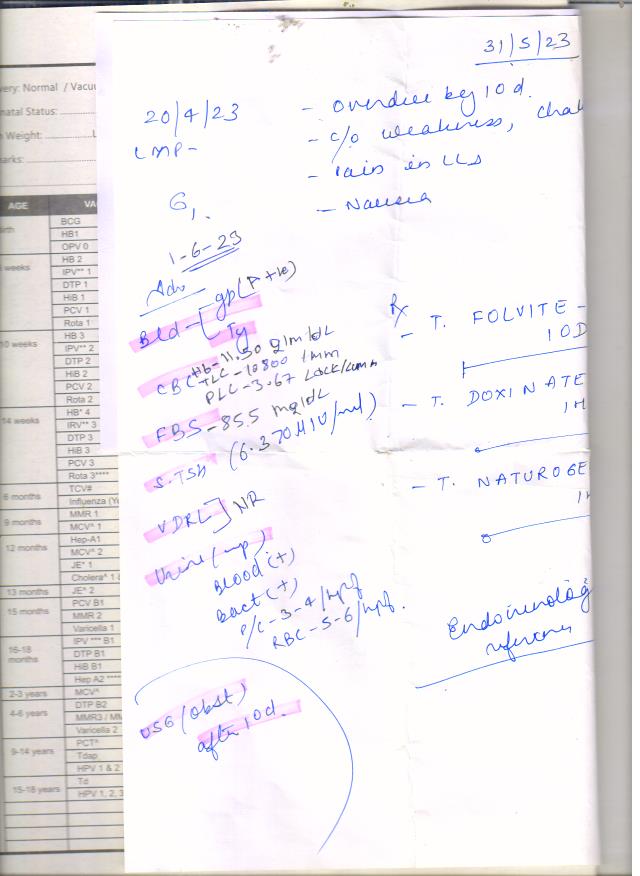 31/5/23
20/4/23
LMP -
- overdue by 10 d.
- c/o weakness,
- Pain in LLs
- Nausea
G1.
1-6-23
Adv
Bld - [ gp (P +ve)
Ty
CBC Hb - 11.50 g/m/dL
TLC - 10800 /mm
PLC - 3.67 Lack/cumm
FBS - 85.5 mg/dL
S.TSH (6.370 µIU/ml)
VDRL] NR
Urine (mp)
Blood (+)
Bact (+)
P/C - 3-4/hpf
RBC - 5-6/hpf.
USG (Obst)
after 10d.
Rx
- T. FOLVITE -
1 OD
- T. DOXINATE
1H
- T. NATUROGE
1H
Endocrinolog
reference
very: Normal / Vacuu
natal Status:
Weight:
arks:
AGE VA
irth BCG
HB1
OPV 0
weeks HB 2
IPV** 1
DTP 1
HiB 1
PCV 1
Rota 1
10 weeks HB 3
IPV** 2
DTP 2
HiB 2
PCV 2
Rota 2
14 weeks HB* 4
IPV** 3
DTP 3
HiB 3
PCV 3
Rota 3****
6 months TCV#
Influenza (Y
9 months MMR 1
MCV^ 1
12 months Hep-A1
MCV^ 2
JE^ 1
Cholera^ 1
13 months JE^ 2
15 months PCV B1
MMR 2
Varicella 1
16-18 months IPV *** B1
DTP B1
HiB B1
Hep A2 ****
2-3 years MCV^
4-6 years DTP B2
MMR3 / MM
Varicella 2
9-14 years PCT^
Tdap
HPV 1 & 2
15-18 years Td
HPV 1, 2, 3